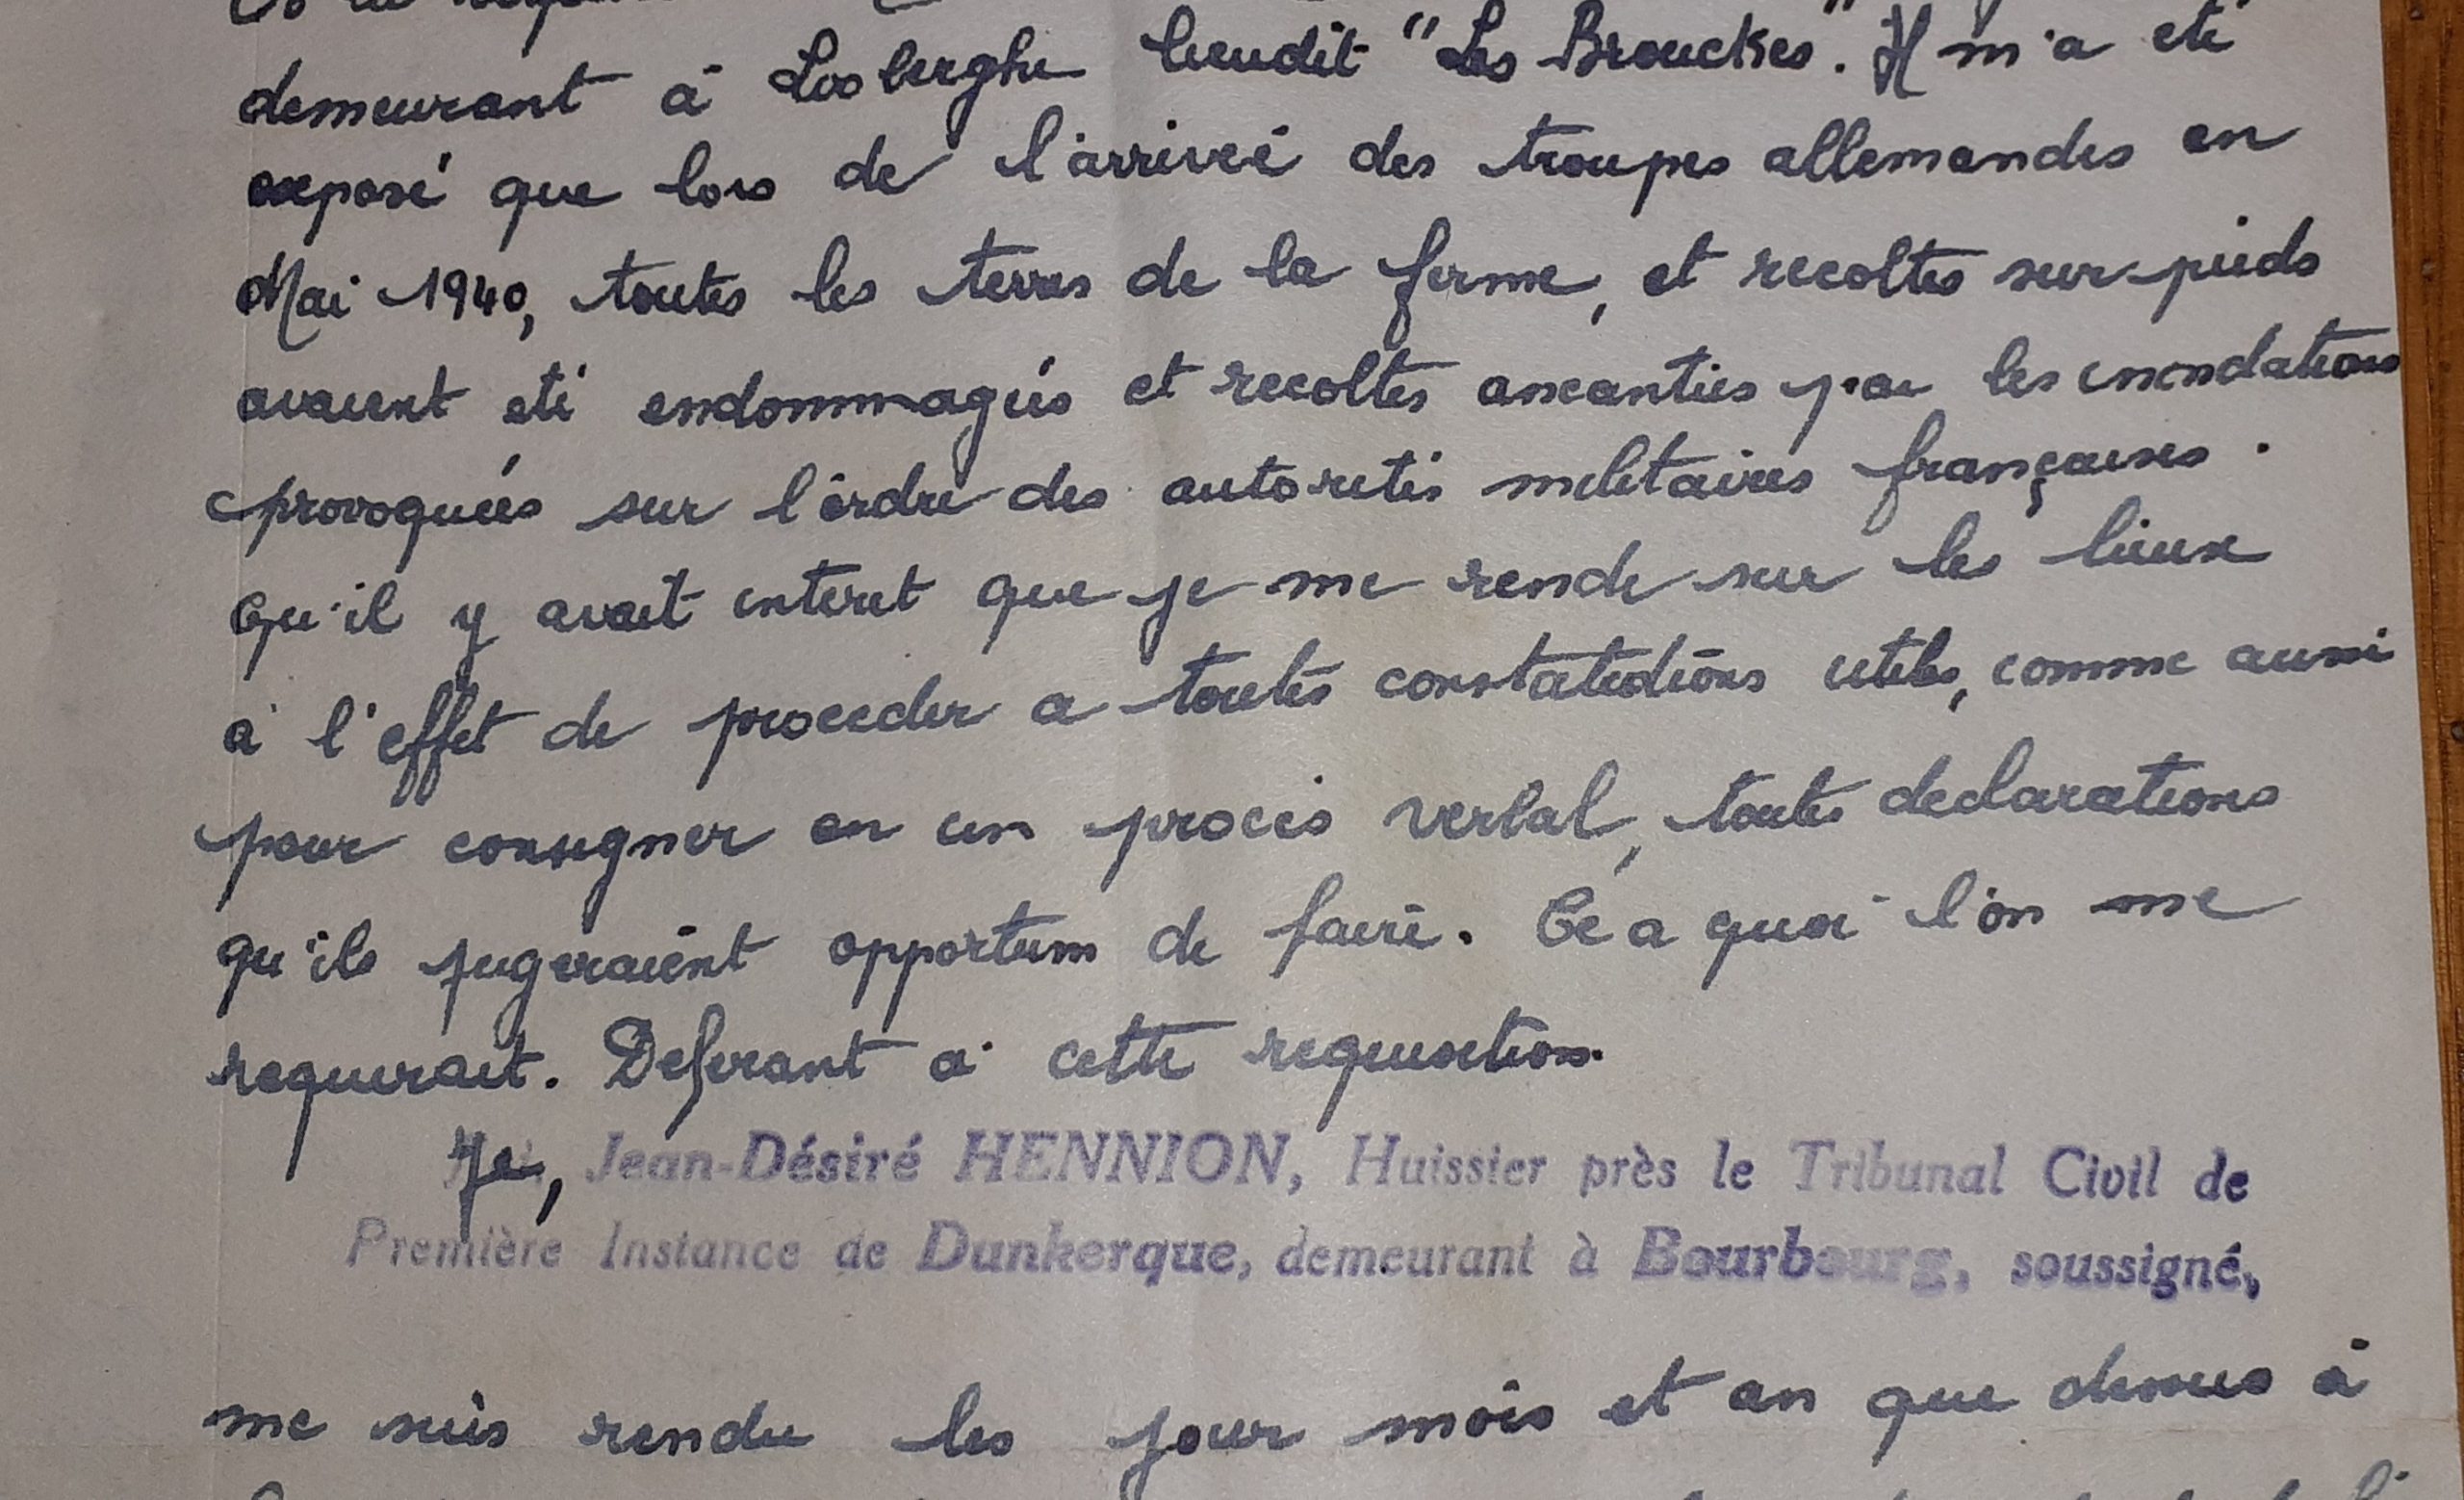 demeurant à Looberghe lieudit "Les Brouckes". Il m'a eté
exposé que lors de l'arriveé des troupes allemandes en
Mai 1940, toutes les terres de la ferme, et recoltes sur pieds
avaient eté endommagées et recoltes aneanties par les inondations
provoquées sur l'ordre des autorités militaires françaises.
Qu'il y avait interet que je me rende sur les lieux
à l'effet de proceder a toutes constatations utiles, comme aussi
pour consigner en un procès verbal, toutes declarations
qu'ils jugeraient opportun de faire. Ce a quoi l'on me
requerait. Deferant a cette requisition.
Je, Jean-Désiré HENNION, Huissier près le Tribunal Civil de
Première Instance de Dunkerque, demeurant à Bourbourg, soussigné,
me suis rendu les jour mois et an que dessus à